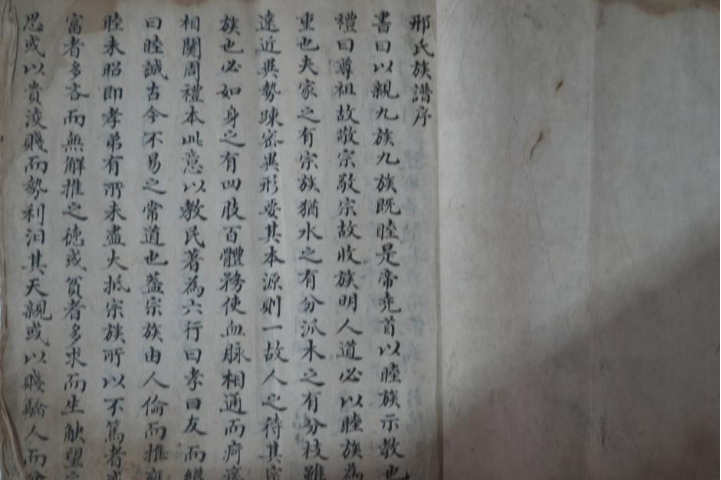 邢氏族譜序
書曰以親九族九族既睦是帝堯首以睦族示教也
禮曰尊祖故敬宗敬宗故收族明人道必以睦族為
重也夫家之有宗族猶水之有分派木之有分枝雖
遠近異勢疎密異形要其本源則一故人之待其宗
族也必如身之有四肢百體務使血脉相通而疴痒
相関周禮本此意以教民著為六行曰孝曰友而繼
曰睦誠古今不易之常道也蓋宗族由人倫而推
睦未昭即孝弟有所未盡大抵宗族所以不篤者或
富者多吝而無解推之德或貧者多求而生觖望之
思或以貴凌賤而勢利汨其天親或以賤驕人而